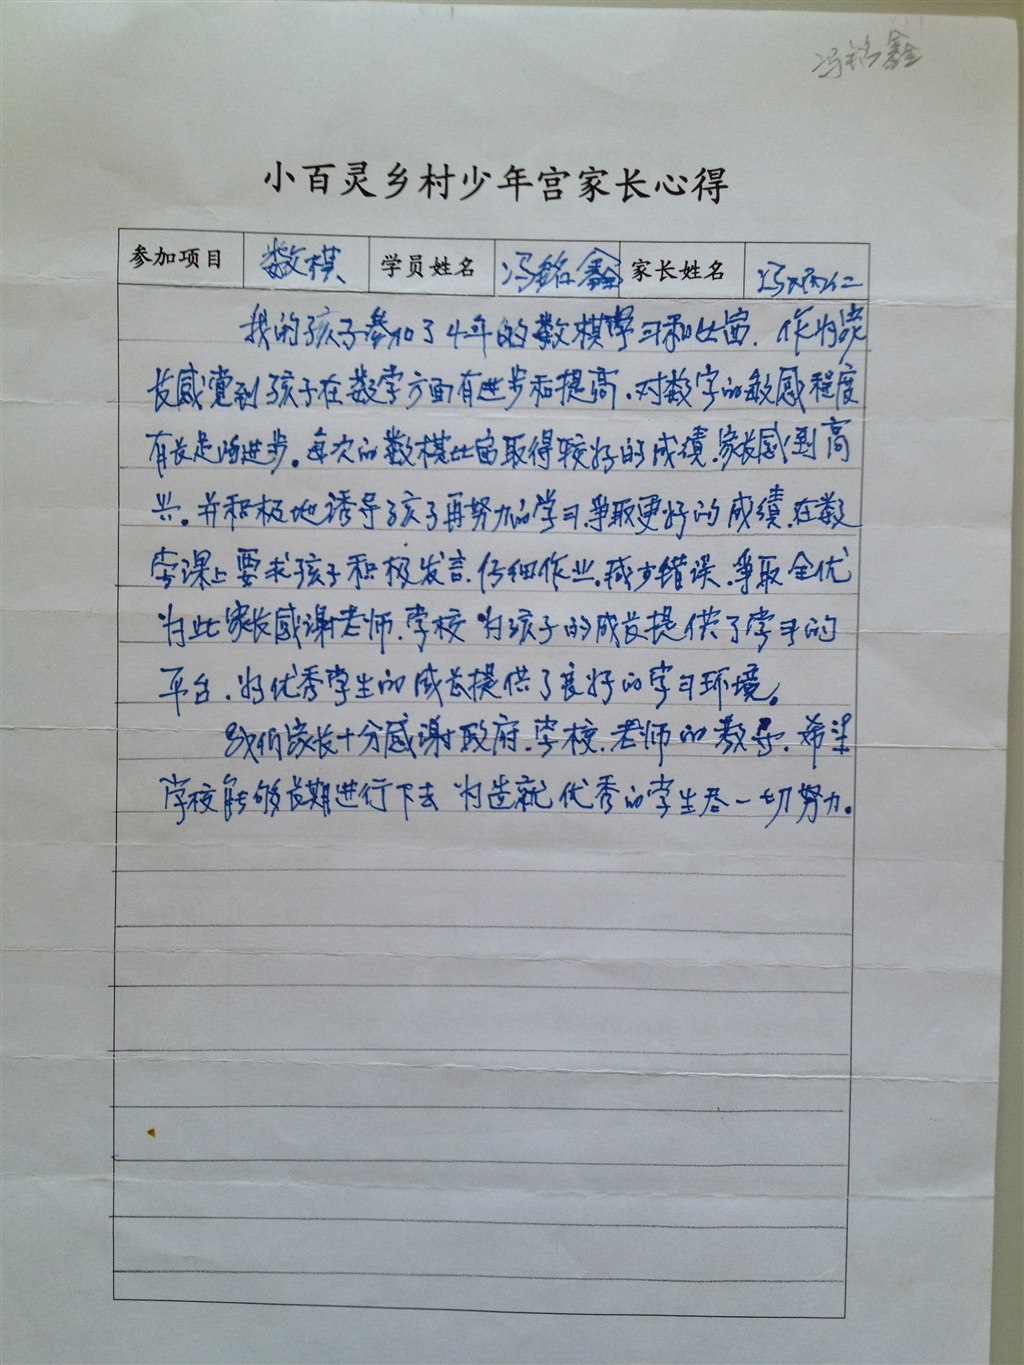 冯铭鑫
小百灵乡村少年宫家长心得
参加项目 数棋 学员姓名 冯铭鑫 家长姓名 冯
我的孩子参加了4年的数棋学习和比赛．作为家
长感觉到孩子在数学方面有进步和提高．对数字的敏感程度
有长足的进步。每次的数棋比赛取得较好的成绩．家长感到高
兴。并积极地诱导孩子再努力的学习．争取更好的成绩．在数
学课上要求孩子积极发言．仔细作业．减少错误．争取全优
为此家长感谢老师．学校 为孩子的成长提供了学习的
平台．为优秀学生的成长提供了良好的学习环境。
我们家长十分感谢政府．学校．老师的教导．希望
学校能够长期进行下去 为造就优秀的学生尽一切努力。